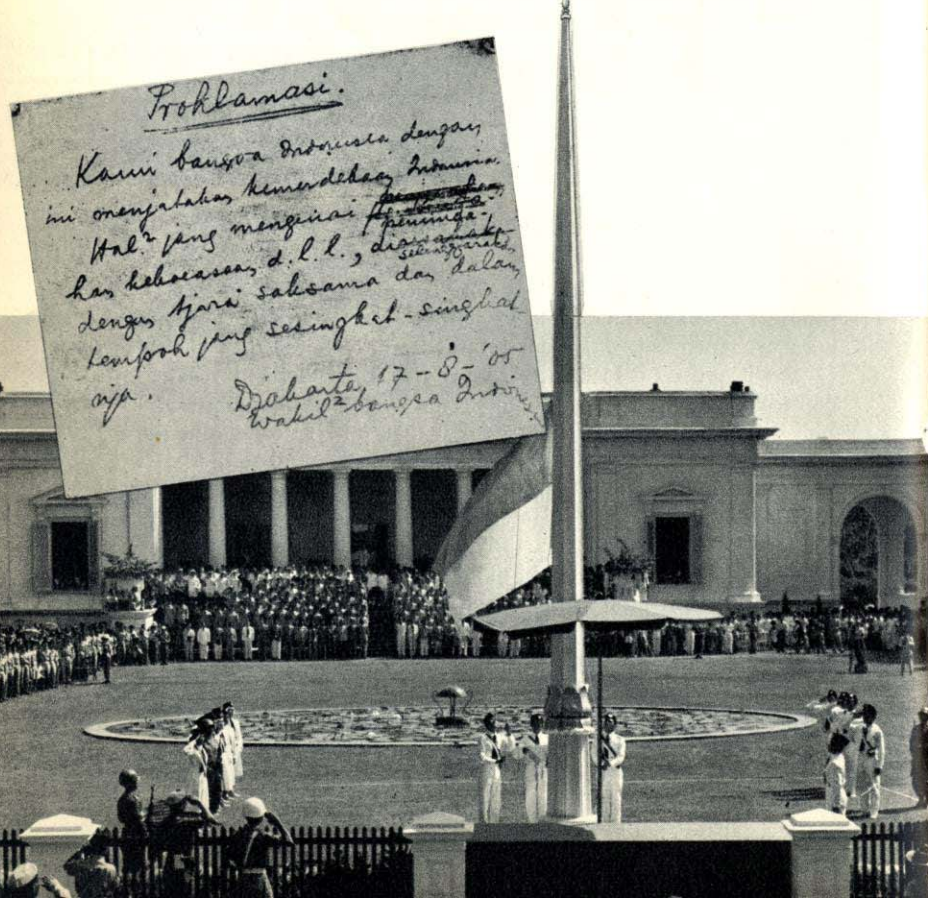 Proklamasi.
Kami bangsa Indonesia dengan
ini menjatakan kemerdekaan Indonesia.
Hal² jang mengenai
peminda-
han kekoeasaan, d.l.l.,
diselenggarakan
dengan tjara saksama dan dalam
tempoh jang sesingkat-singkat
nja.
Djakarta, 17 - 8 - '05
Wakil² bangsa Indonesia